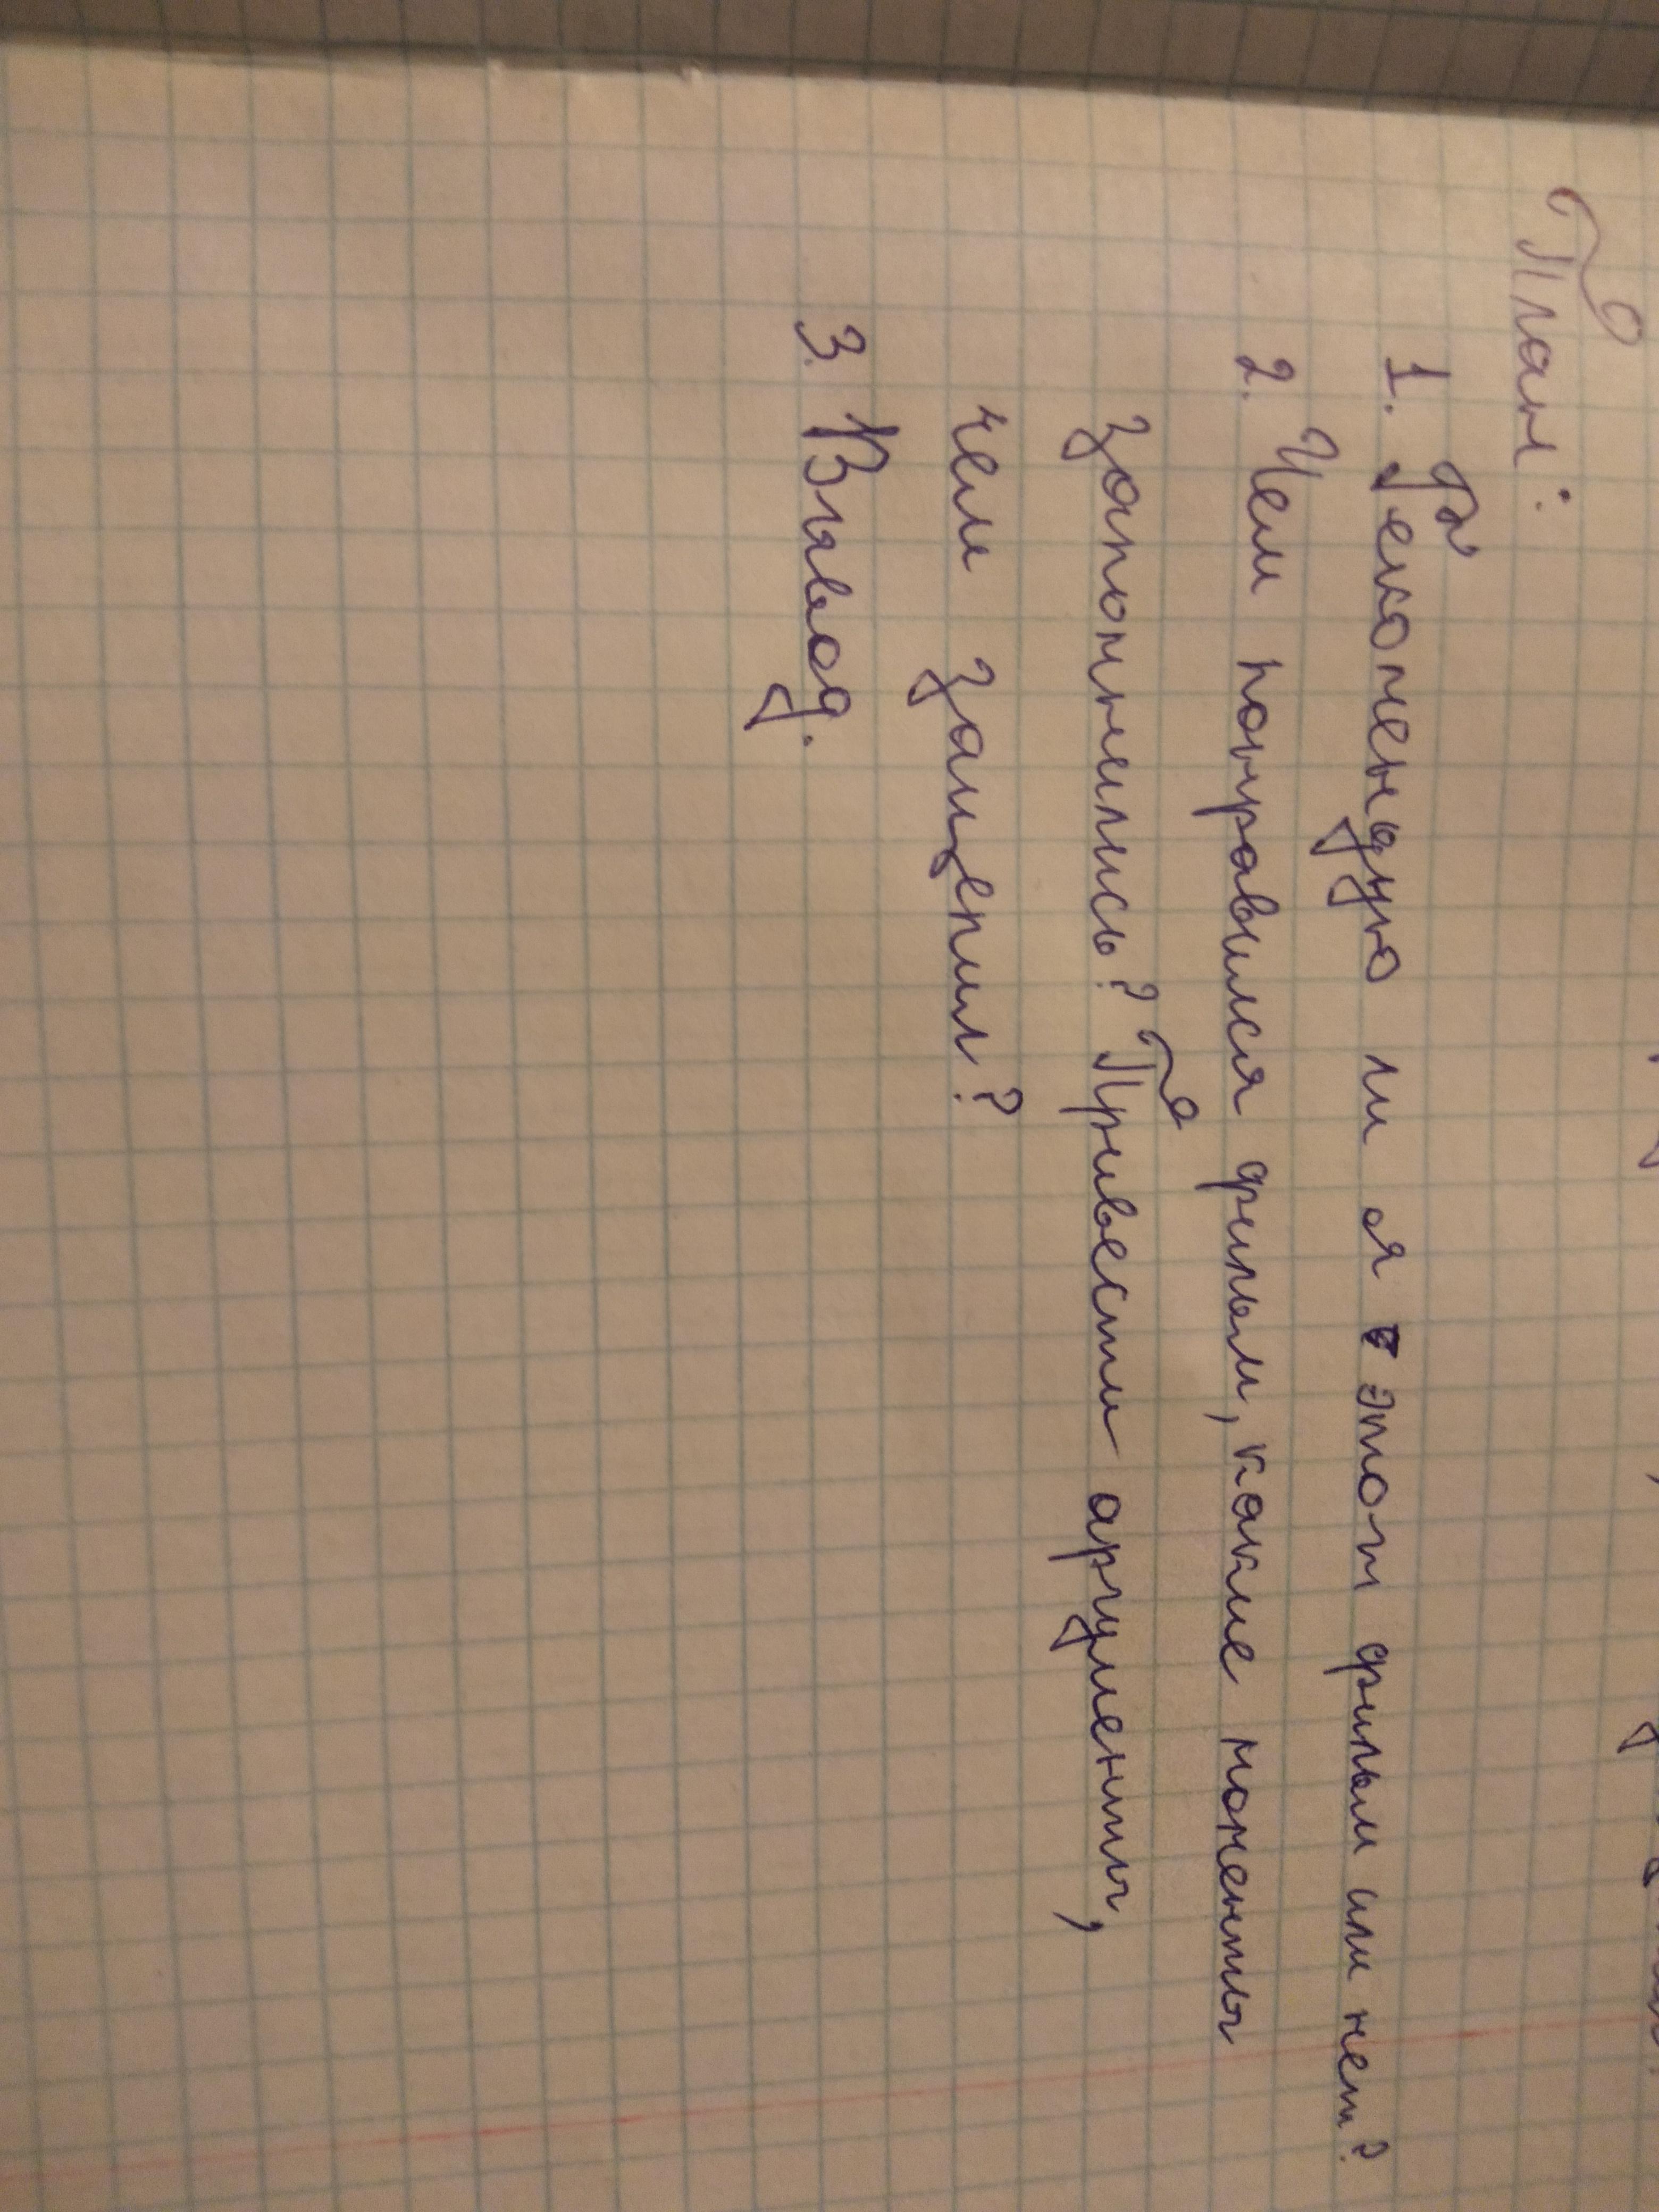 План:
1. Рекомендую ли я этот фильм или нет?
2. Чем понравился фильм, какие моменты
запомнились? Привести аргументы,
чем зацепил?
3. Вывод.